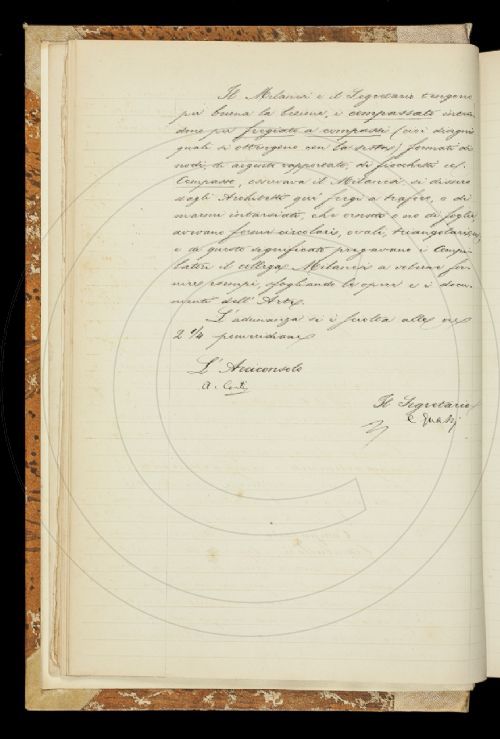 Il Milanesi e il Segretario tengono
per buona la lezione, e compassati inten-
dono per fregiato a compassi (cioè disegni
quali si ottengono con la sesta) formati di
nodi, di argento rapportato, di fiocchetti ec.
Compasse, osservava il Milanesi, si dissero
dagli Architetti que' fregi a traforo, o di
marmi intarsiati, che ornati o no di foglie,
avevano forma circolare, ovale, triangolare ec,
e di questo significato pregavano i Compi-
latori il collega Milanesi a volerne for-
nire esempi, sfogliando le opere e i docu-
menti dell'Arte.
L'adunanza si è sciolta alle ore
2 1/4 pomeridiane
L'Arciconsolo
A. Conti
Il Segretario